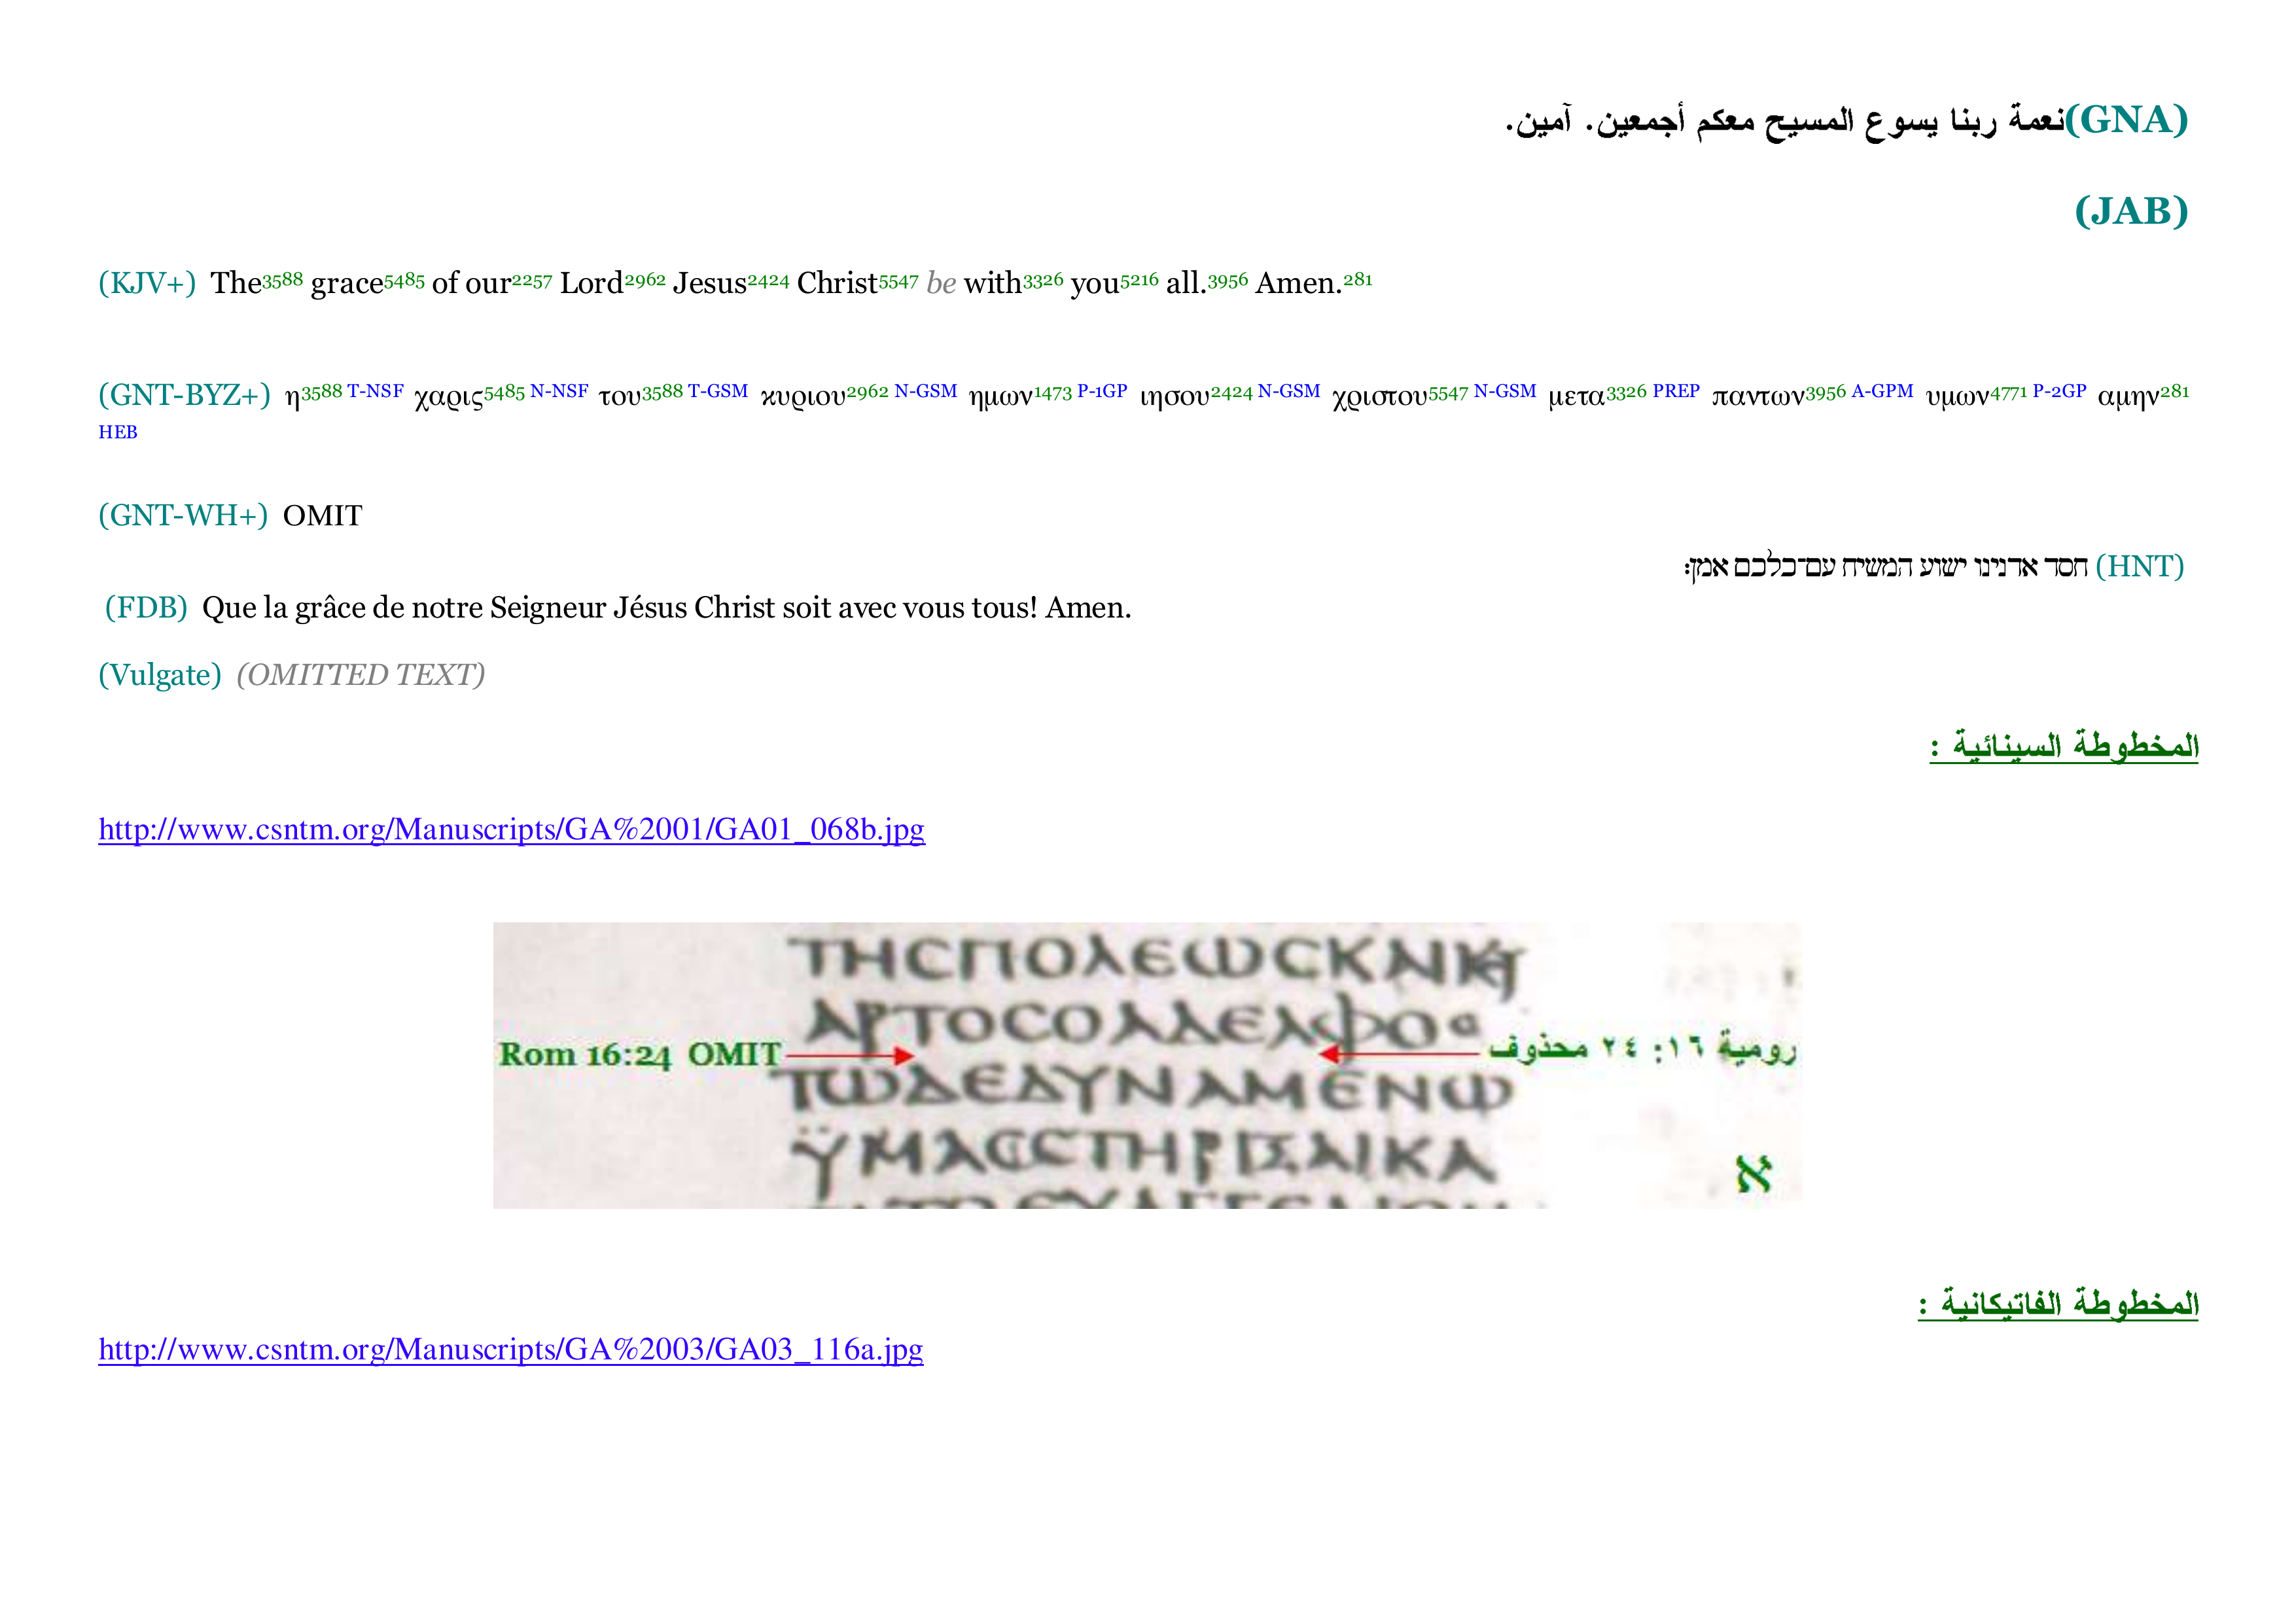 (GNA)نعمة ربنا يسوع المسيح معكم أجمعين. آمين.
(JAB)
(KJV+) The3588 grace5485 of our2257 Lord2962 Jesus2424 Christ5547 be with3326 you5216 all.3956 Amen.281
(GNT-BYZ+) η3588 T-NSF χαρις5485 N-NSF του3588 T-GSM κυριου2962 N-GSM ημων1473 P-1GP ιησου2424 N-GSM χριστου5547 N-GSM μετα3326 PREP παντων3956 A-GPM υμων4771 P-2GP αμην281
HEB
(GNT-WH+) OMIT
(HNT) חסד אדנינו ישוע המשיח עם־כלכם אמן׃
(FDB) Que la grâce de notre Seigneur Jésus Christ soit avec vous tous! Amen.
(Vulgate) (OMITTED TEXT)
المخطوطة السينائية :
http://www.csntm.org/Manuscripts/GA%2001/GA01_068b.jpg
ΤΗϹΠΟΛΕΩϹΚΑΙΚ
ΑΡΤΟϹΟΑΔΕΛΦΟϹ
Rom 16:24 OMIT
رومية ١٦: ٢٤ محذوف
ΤΩΔΕΔΥΝΑΜΕΝΩ
ΫΜΑϹϹΤΗΡΙΞΑΙΚΑ
א
المخطوطة الفاتيكانية :
http://www.csntm.org/Manuscripts/GA%2003/GA03_116a.jpg